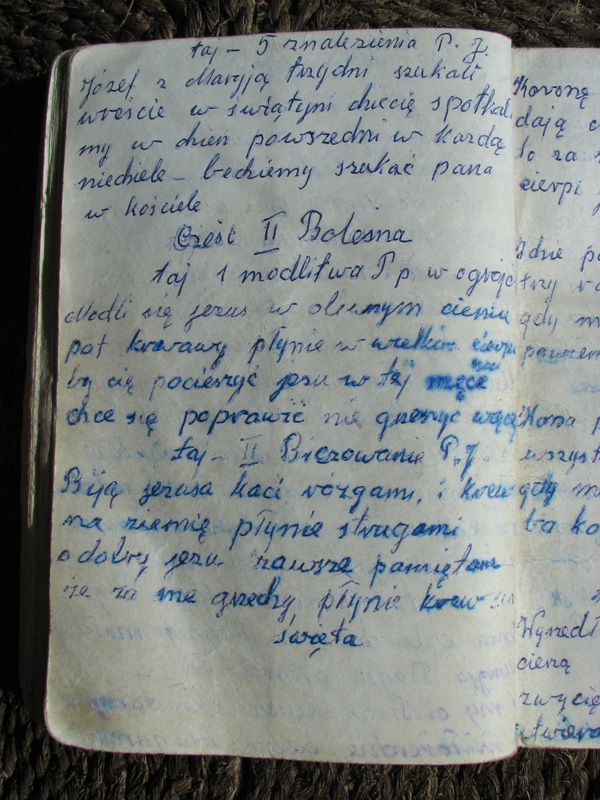 taj - 5 znalezienia P. J.
Józef z Maryją trzydni szukali
wreście w świątyni dziecię spotkal
my w dzień powszedni w każdą
niedziele - bedziemy szukać pana
w kościele
Cześć II Bolesna
taj 1 modlitwa P p w ogrójc
Modli się jezus w oliwnym cieniu
pot krwawy płynie w wielkim cierpi
by cię pocieszyć jesu w tej męce
chce się poprawić nie grzeszyć więcej
taj - II Biczowanie P. J
Biją jezusa kaci rózgami, i krew
na ziemię płynie strugami
o dobry jezu zawsze pamiętam
że za me grzechy płynie krew
święta
Koronę
dają c
to za
cierpi
Idzie po
trzy ra
gdy m
Kona p
wszyst
gdy m
ba ko
Wyszedł
cieną
zwycię
otwiera